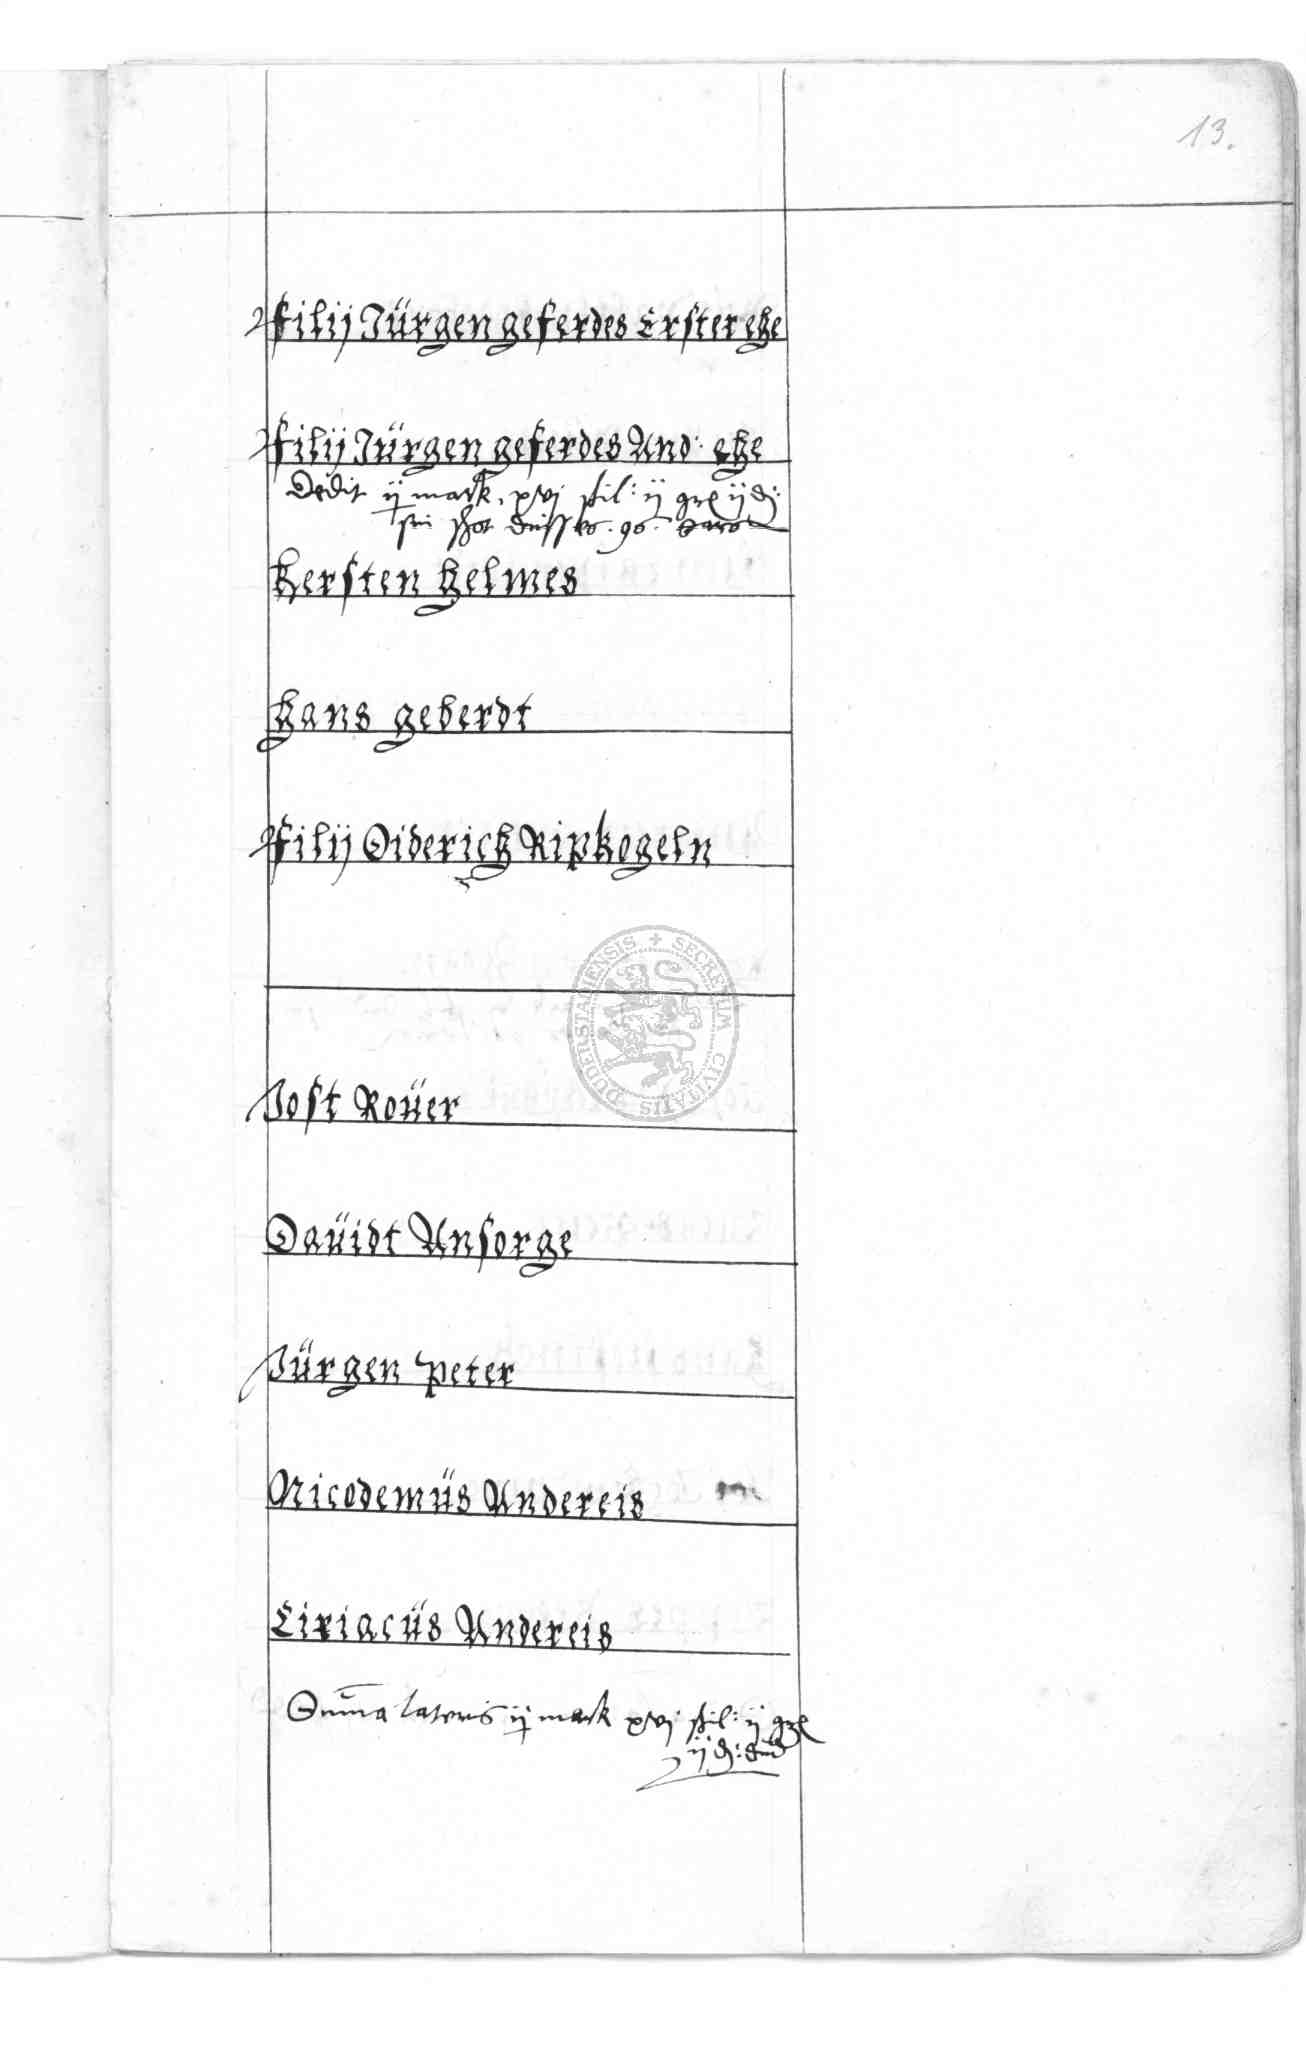 13.
Filij Jürgen geferdes Erster ehe
Filij Jürgen geferdes And: ehe
Dedit ij mark, xvj ßil: ij ij d:
ßot
Hersten helmes
Hans geberdt
Filij Diderich Ripkogeln
SECRETUM CIVITATIS DUDERSTADIENSIS
Jost Roüer
Daüidt Ansorge
Jürgen Peter
Nicodemüs Andereis
Ciriacüs Andereis
Suma lateris ij mark xvj ßil: ij
ij d: